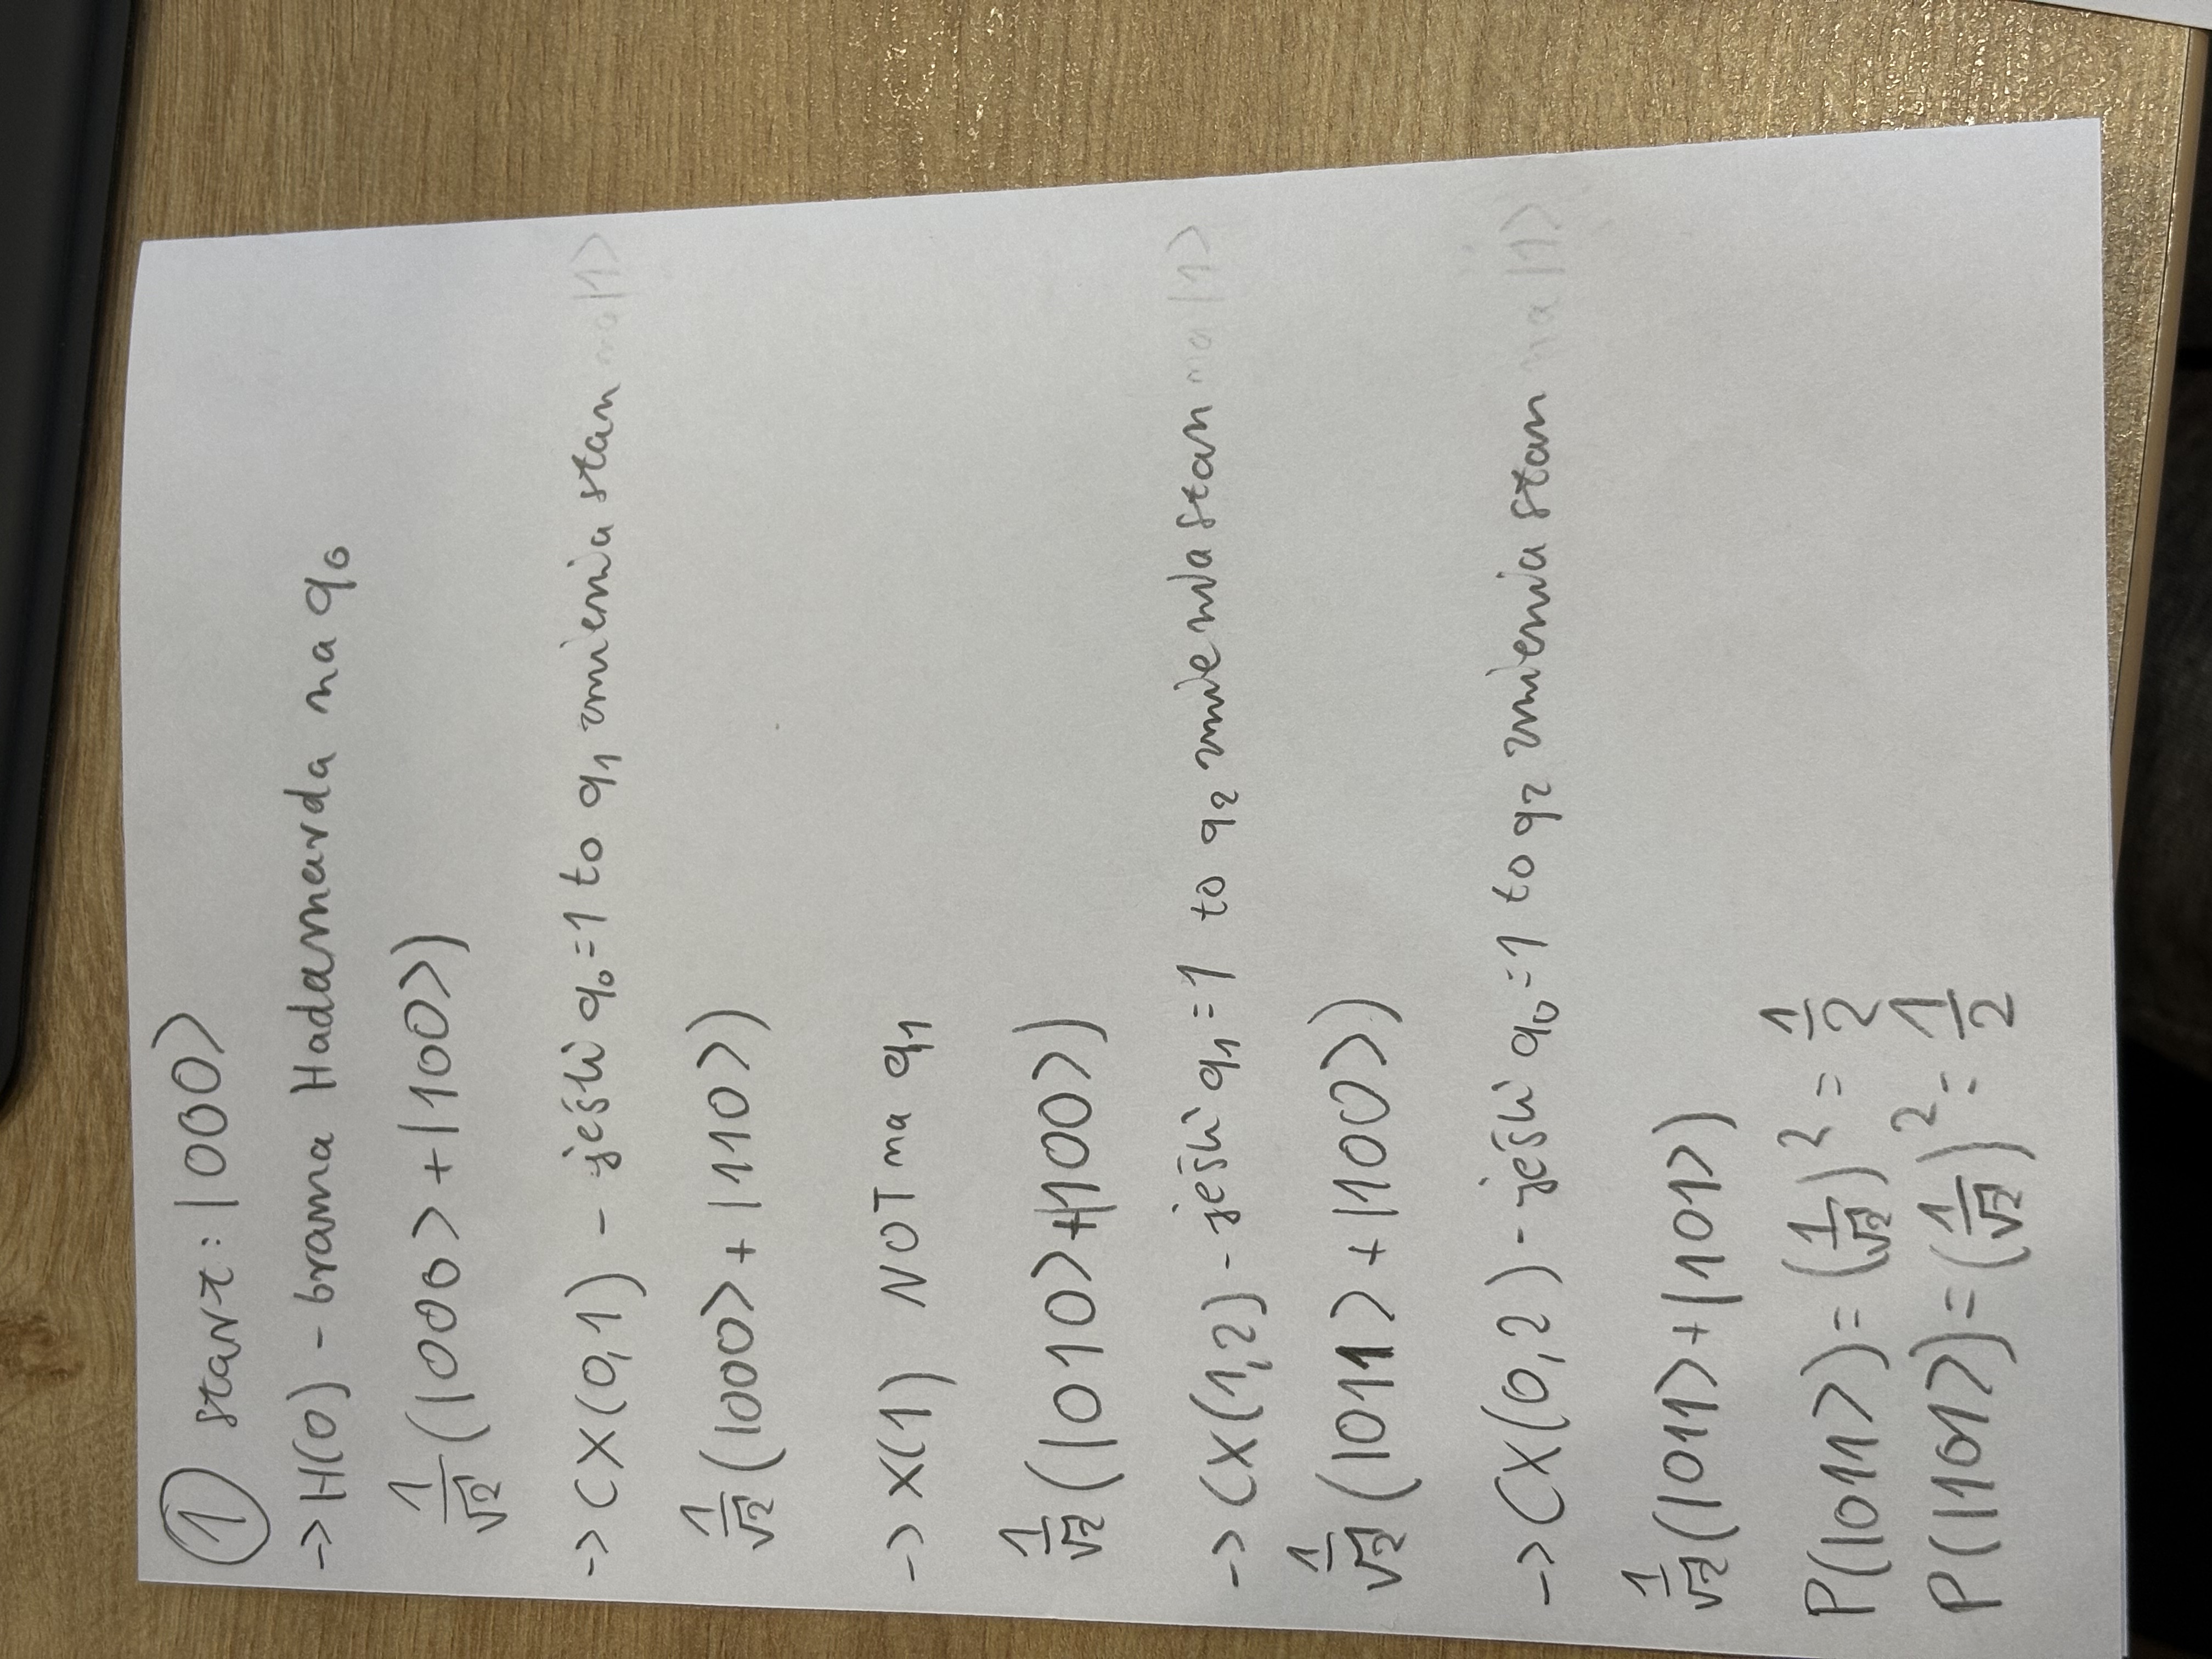 ① start: |000⟩
-> H(0) - brama Hadamarda na q₀
1/√2 (|000⟩ + |100⟩)
-> CX(0,1) - jeśli q₀=1 to q₁ zmienia stan na |1⟩
1/√2 (|000⟩ + |110⟩)
-> X(1) NOT na q₁
1/√2 (|010⟩ + |100⟩)
-> CX(1,2) - jeśli q₁=1 to q₂ zmienia stan na |1⟩
1/√2 (|011⟩ + |100⟩)
-> CX(0,2) - jeśli q₀=1 to q₂ zmienia stan na |1⟩
1/√2 (|011⟩ + |101⟩)
P(|011⟩) = (1/√2)² = 1/2
P(|101⟩) = (1/√2)² = 1/2